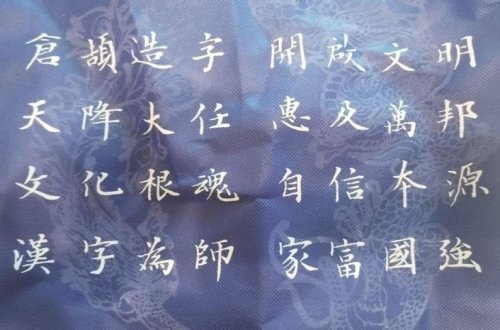 倉頡造字 開啟文明
天降大任 惠及萬邦
文化根魂 自信本源
漢字為師 家富國強